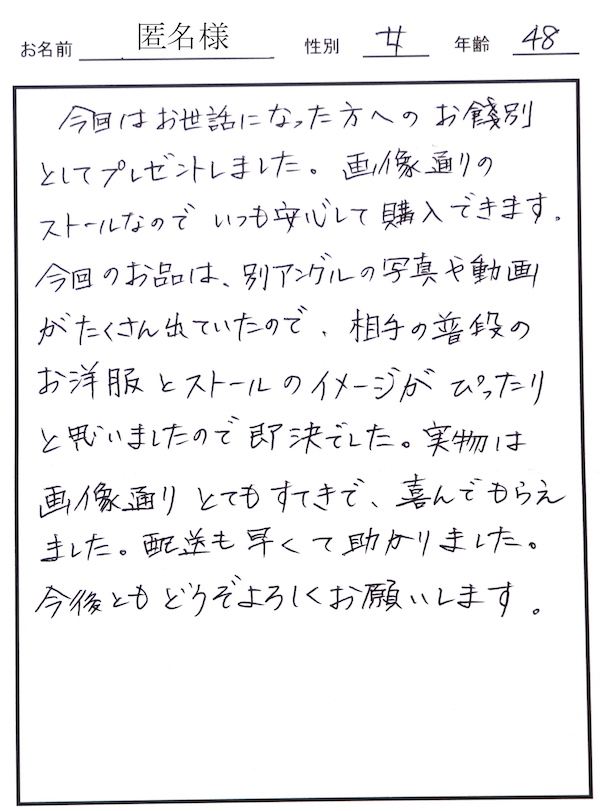 お名前 匿名様 性別 女 年齢 48
今回はお世話になった方へのお餞別
としてプレゼントしました。画像通りの
ストールなのでいつも安心して購入できます。
今回のお品は、別アングルの写真や動画
がたくさん出ていたので、相手の普段の
お洋服とストールのイメージがぴったり
と思いましたので即決でした。実物は
画像通りとてもすてきで、喜んでもらえ
ました。配送も早くて助かりました。
今後ともどうぞよろしくお願いします。